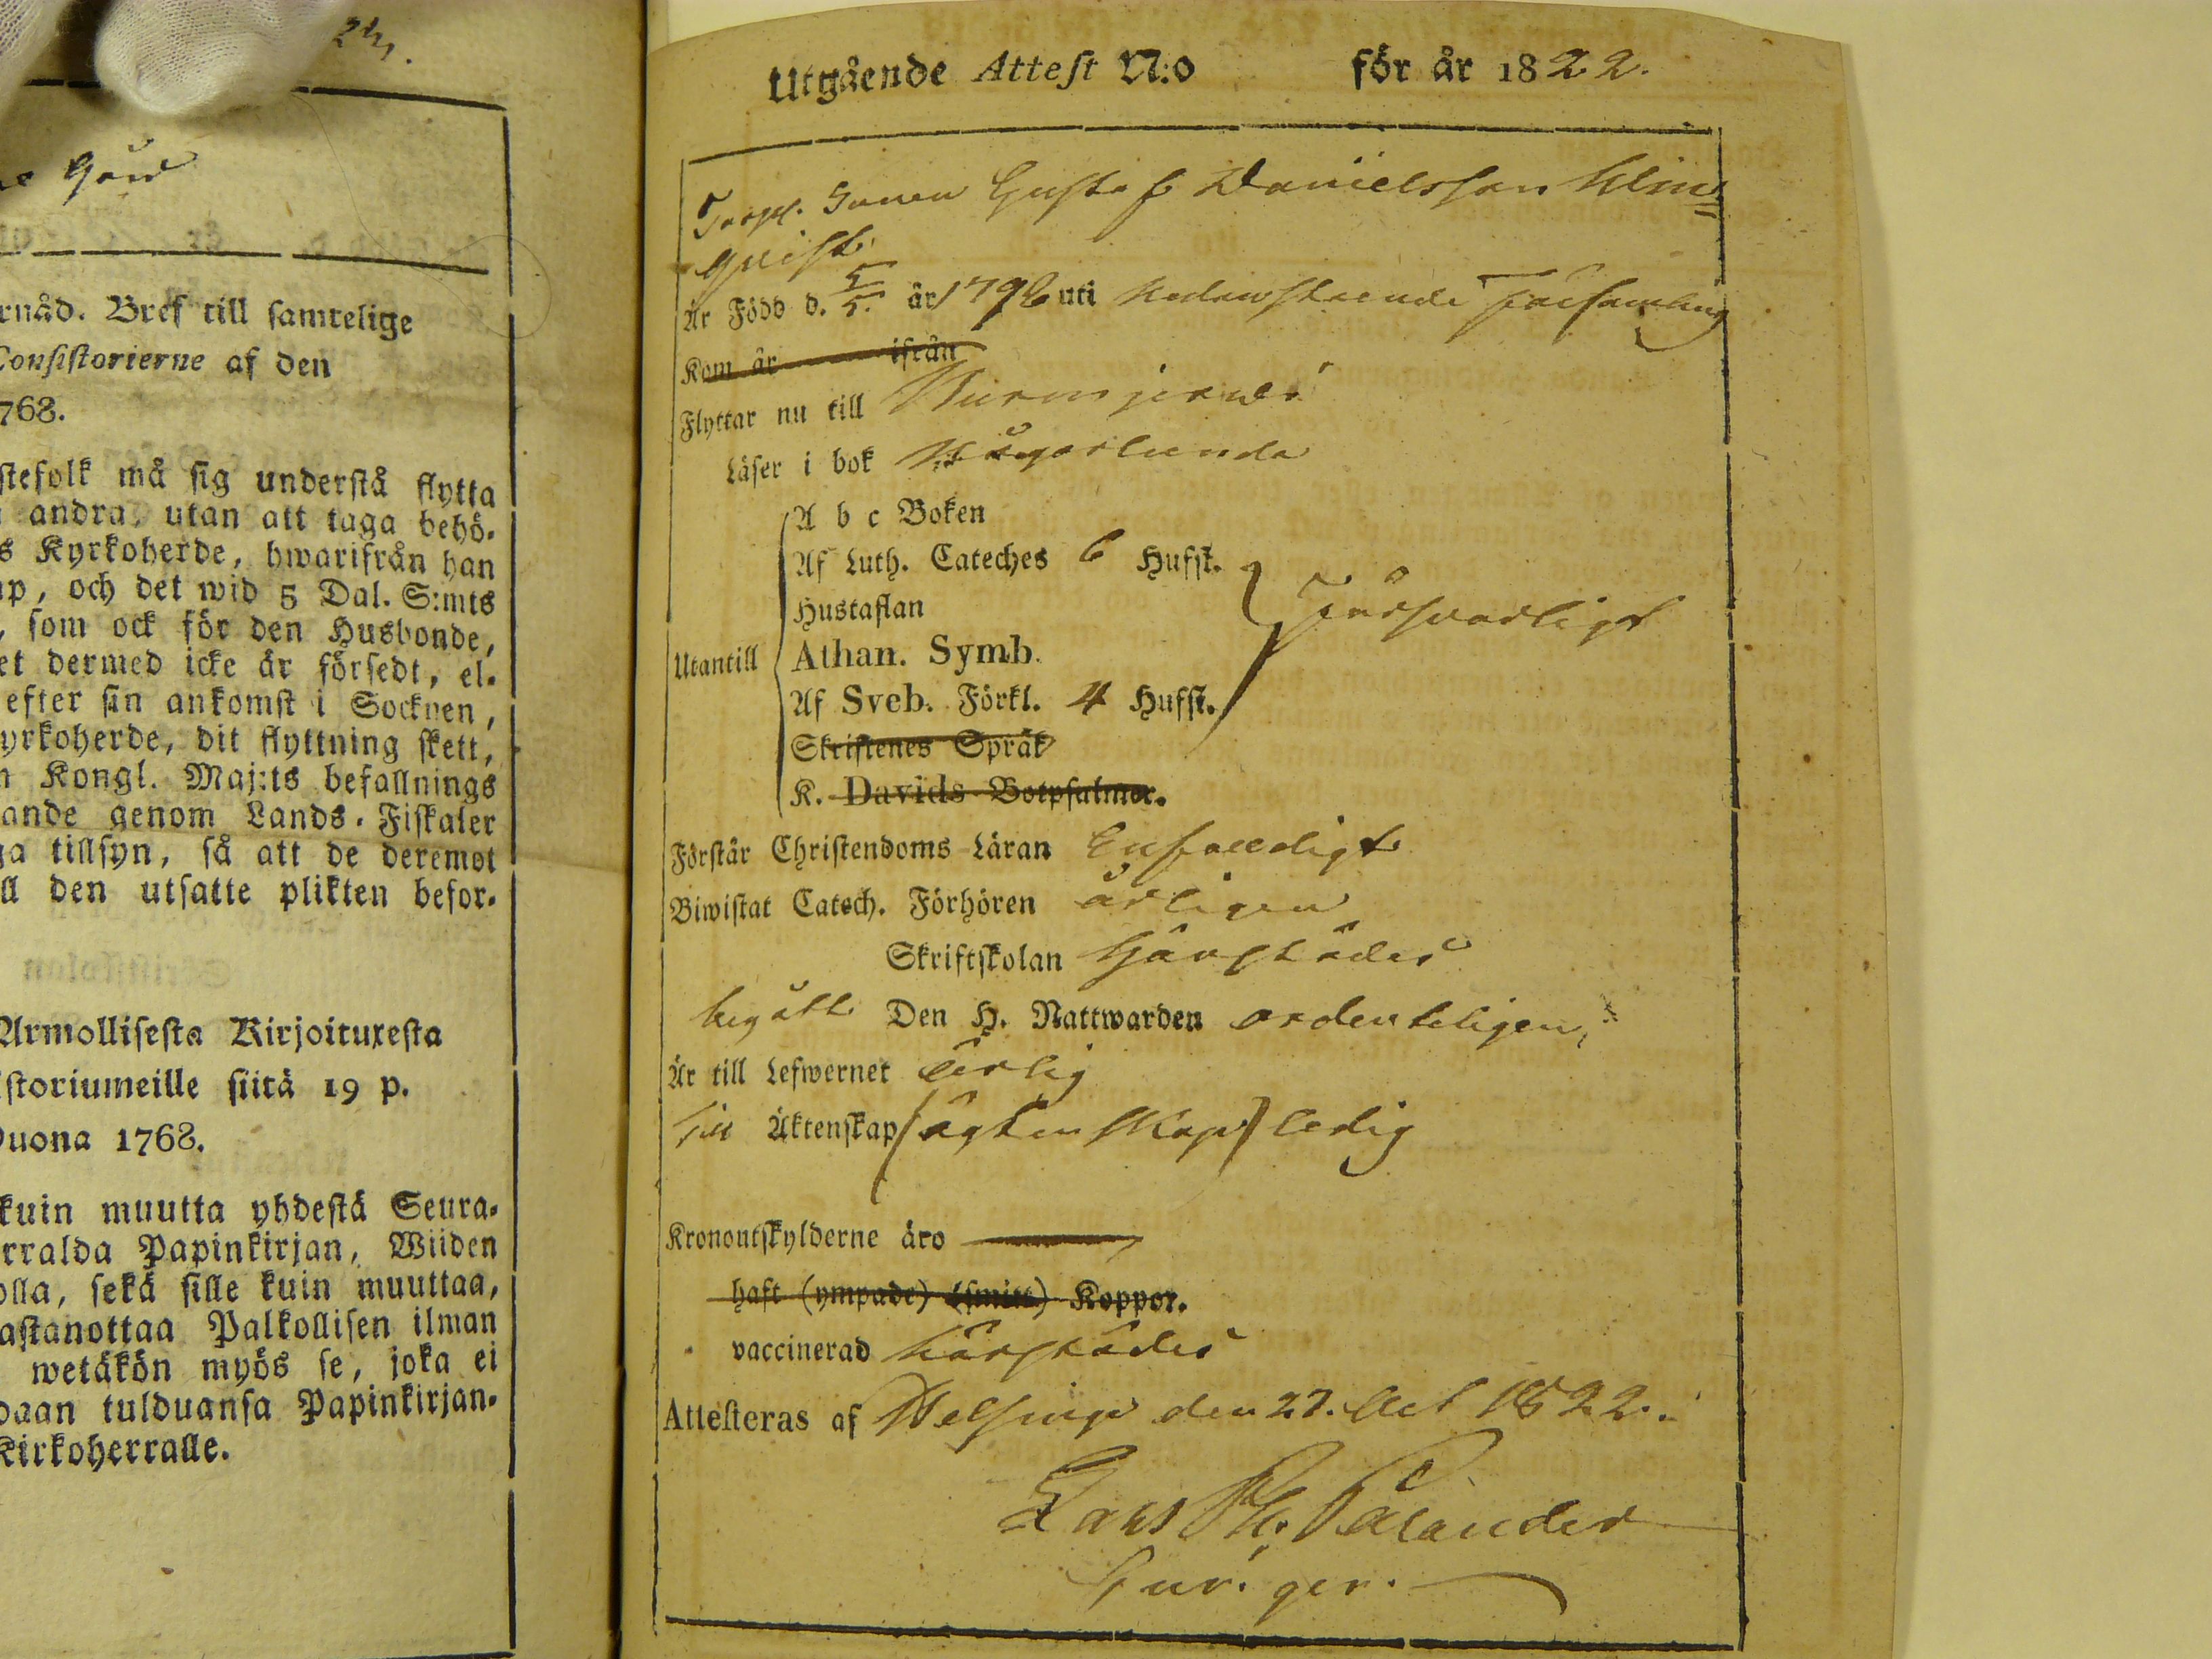 2/11.
Gård
rnåd. Bref till samtelige
Consistorierne af den
768.
stefolk må sig understå flytta
andra, utan att taga behö-
s Kyrkoherde, hwarifrån han
ap, och det wid 5 Dal. S:mts
, som ock för den Husbonde,
et dermed icke är försedt, el-
efter sin ankomst i Socknen,
yrkoherde, dit flyttning skett,
n Kongl. Maj:ts befallnings
ande genom Lands-Fiskaler
ga tillsyn, så att de deremot
ll den utsatte plikten befor-
Armollisesta Kirjoituxesta
istoriumeille siitä 19 p.
ouona 1768.
kuin muutta yhdestä Seura-
rralda Papinkirjan, Wiiden
olla, sekä sille kuin muuttaa,
astanottaa Palkollisen ilman
wetäkön myös se, joka ei
daan tulduansa Papinkirjan-
Kirkoherralle.
Utgående Attest N:o för år 1822.
Torpl. Sonen Gustaf Danielsson Klin=
qvist
Är Född d. 5/5. år 1796 uti nedanstående Församling
Kom år ifrån
Flyttar nu till Nurmijervi
Läser i bok någorlunda
Utantill
A b c Boken
Af Luth. Cateches 6 Hufst.
Hustaflan
Athan. Symb.
Af Sveb. Förkl. 4 Hufst.
Försvarligt
Skriftenes Språk
K. Davids Botpsalmer.
Förstår Christendoms Läran Enfaldigt
Biwistat Catech. Förhören årligen
Skriftskolan härstädes
begått Den H. Nattwarden ordenteligen,
Är till Lefwernet ärlig
till Äktenskap (ägtenskap) ledig
Kronoutskylderne äro
haft (ympade) (smitt) Koppor.
vaccinerad härstädes
Attesteras af Helsinge den 27. Oct 1822.
Lars Palander